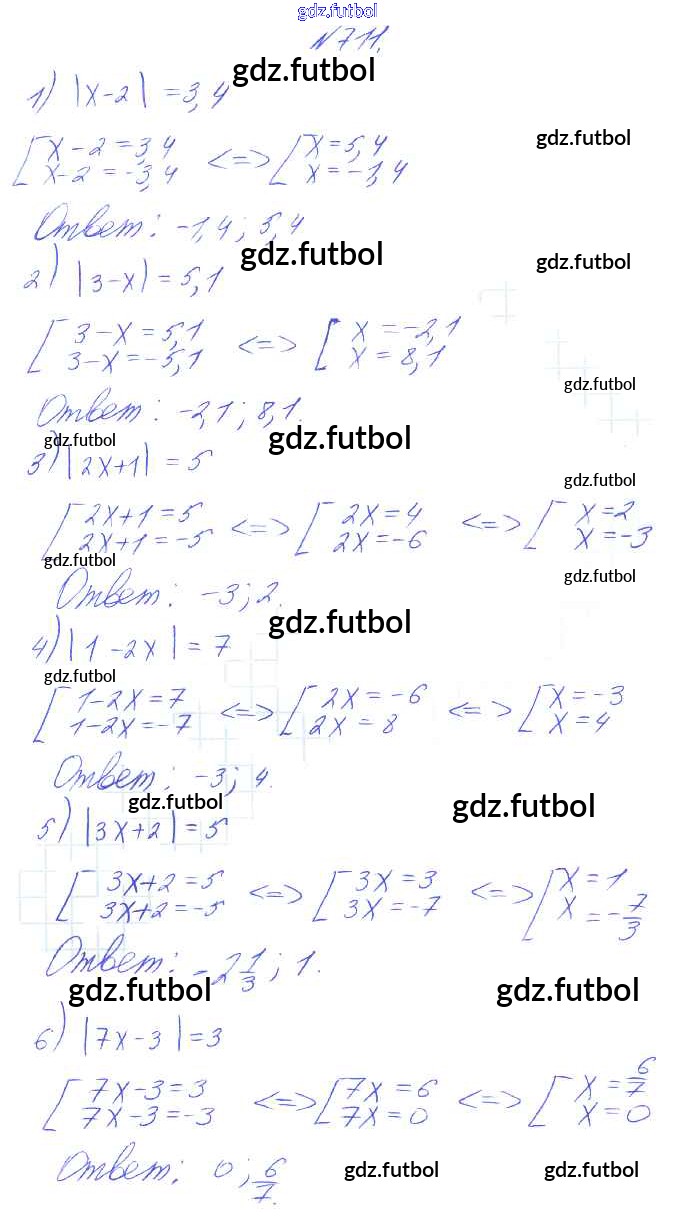 gdz.futbol
N711.
gdz.futbol
1) |x-2| = 3,4
gdz.futbol
[ x-2=3,4 <=> [ x=5,4
x-2=-3,4 x=-1,4
Ответ: -1,4; 5,4
gdz.futbol gdz.futbol
2) |3-x| = 5,1
[ 3-x=5,1 <=> [ x=-2,1
3-x=-5,1 x=8,1
gdz.futbol
Ответ: -2,1; 8,1.
gdz.futbol gdz.futbol
3) |2x+1| = 5
gdz.futbol
[ 2x+1=5 <=> [ 2x=4 <=> [ x=2
2x+1=-5 2x=-6 x=-3
gdz.futbol gdz.futbol
Ответ: -3; 2.
gdz.futbol
4) |1-2x| = 7
gdz.futbol
[ 1-2x=7 <=> [ 2x=-6 <=> [ x=-3
1-2x=-7 2x=8 x=4
Ответ: -3; 4.
gdz.futbol gdz.futbol
5) |3x+2| = 5
[ 3x+2=5 <=> [ 3x=3 <=> [ x=1
3x+2=-5 3x=-7 x=-7/3
Ответ: -2 1/3; 1.
gdz.futbol gdz.futbol
6) |7x-3| = 3
[ 7x-3=3 <=> [ 7x=6 <=> [ x=6/7
7x-3=-3 7x=0 x=0
Ответ: 0; 6/7.
gdz.futbol gdz.futbol